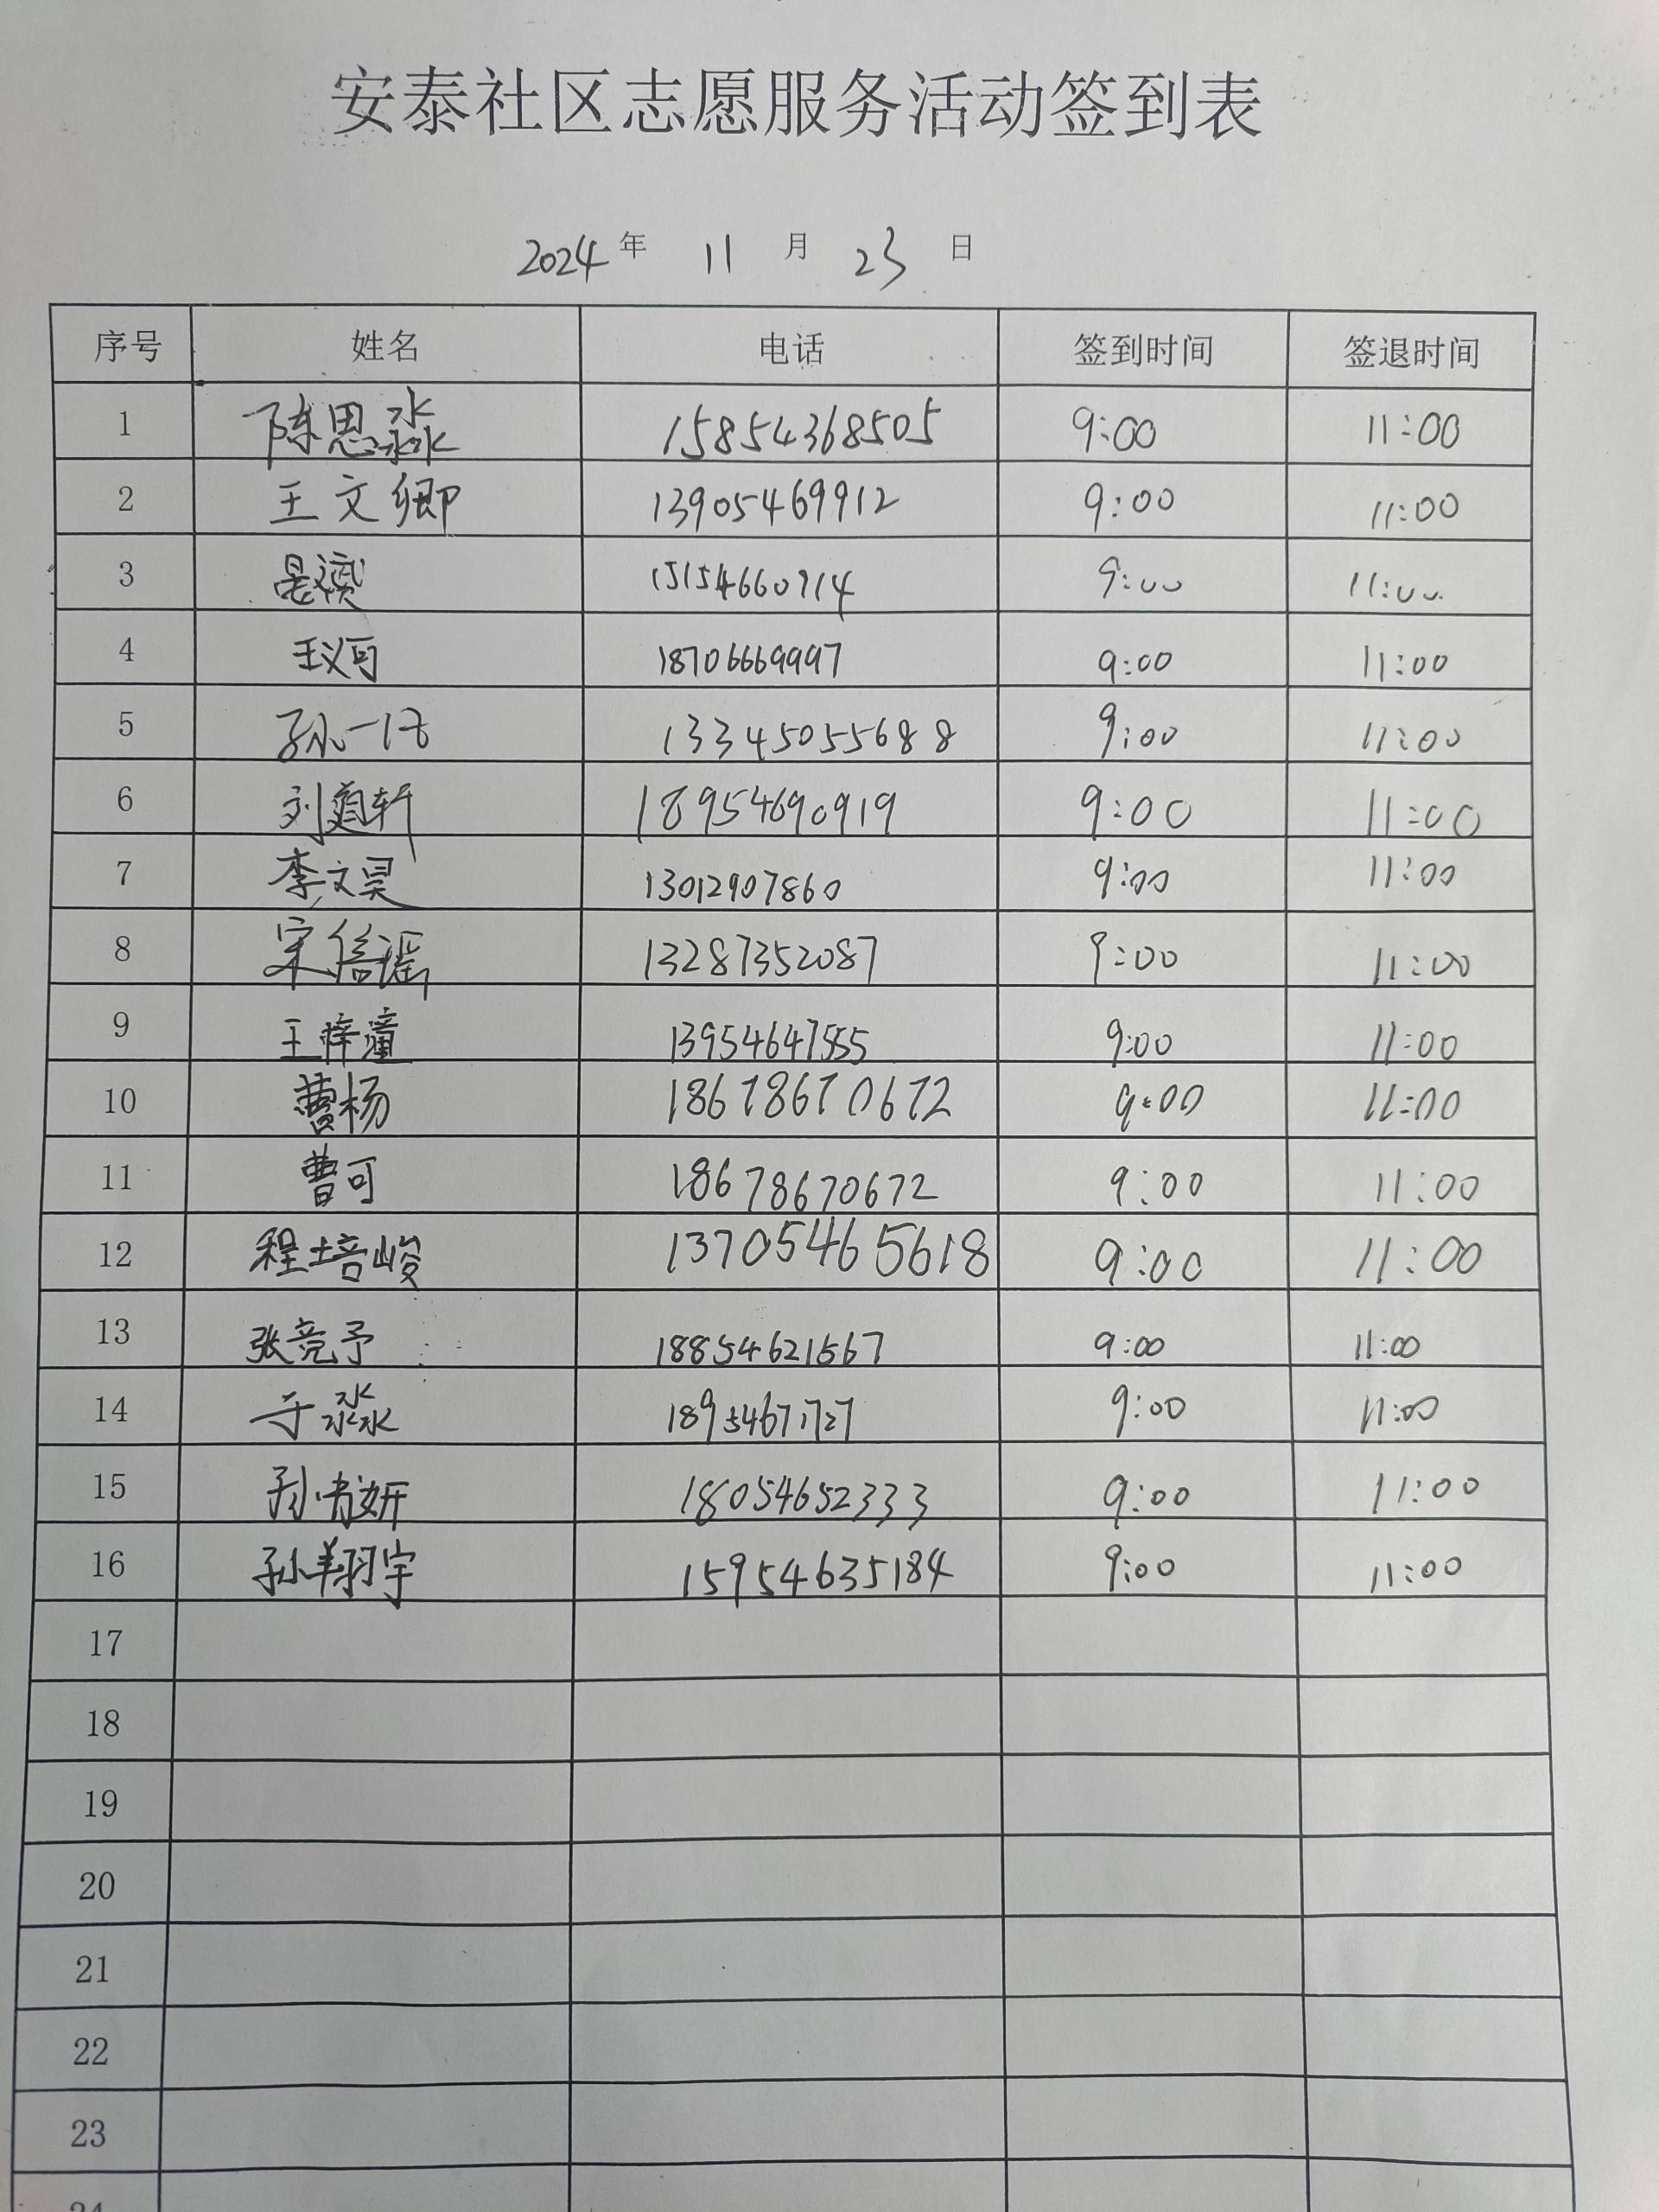 安泰社区志愿服务活动签到表
2024 年 11 月 23 日
序号 姓名 电话 签到时间 签退时间
1 陈思淼 15854368505 9:00 11:00
2 王文卿 13905469912 9:00 11:00
3 15154660714 9:00 11:00
4 王义可 18706669997 9:00 11:00
5 孙一飞 13345055688 9:00 11:00
6 刘庭轩 18954690919 9:00 11:00
7 李文昊 13012907860 9:00 11:00
8 宋信谣 13287352087 9:00 11:00
9 王梓潼 13954647555 9:00 11:00
10 曹杨 18678670672 9:00 11:00
11 曹可 18678670672 9:00 11:00
12 程培峻 13705465618 9:00 11:00
13 张竞予 18854621567 9:00 11:00
14 于淼 18954671727 9:00 11:00
15 孙肖妍 18054652333 9:00 11:00
16 孙翔宇 15954635184 9:00 11:00
17
18
19
20
21
22
23
24